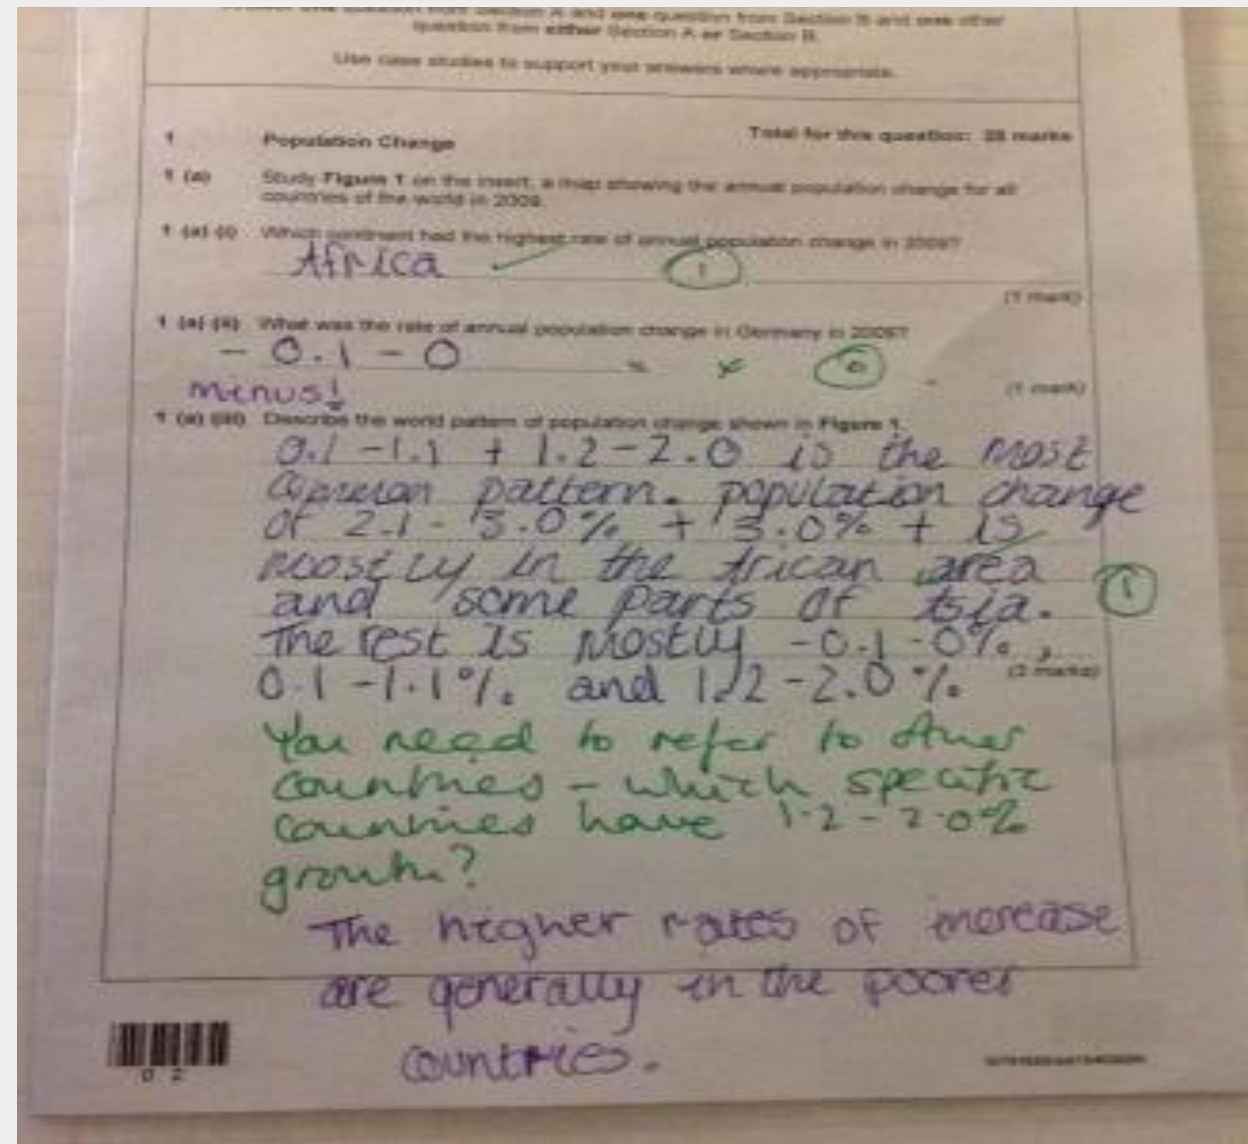 question from either Section A or Section B.
Use case studies to support your answers where appropriate.
1 Population Change Total for this question: 25 marks
1 (a) Study Figure 1 on the insert, a map showing the annual population change for all
countries of the world in 2009.
1 (a) (i) Which continent had the highest rate of annual population change in 2009?
Africa ✓ 1
(1 mark)
1 (a) (ii) What was the rate of annual population change in Germany in 2009?
- 0.1 - 0 % x 0
(1 mark)
minus!
1 (a) (iii) Describe the world pattern of population change shown in Figure 1.
0.1 - 1.1 + 1.2 - 2.0 is the most
common pattern. population change
of 2.1 - 3.0% + 3.0% + is
mostly in the African area
and some parts of Asia. 1
The rest is mostly -0.1 - 0%,
0.1 - 1.1% and 1.2 - 2.0%
You need to refer to other
countries - which specific
countries have 1.2 - 2.0%
growth?
The higher rates of increase
are generally in the poorer
countries.
0 2